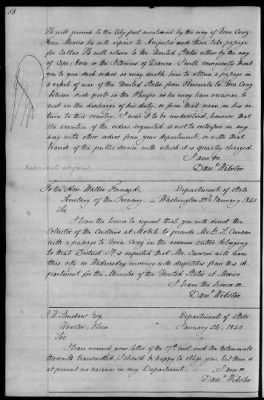 He will proceed to the City first mentioned by the way of Vera Cruz.
From Mexico he will repair to Acapulco and there take passage
for Callao. He will return to the United States either by the way
of Cape Horn or the Isthmus of Darien. I will consequently thank
you to give such orders as may enable him to obtain a passage in
a vessel of war of the United States from Pensacola to Vera Cruz,
between such ports in the Pacific as he may have occasion to
visit in the discharge of his duty, or from that ocean on his re-
turn to this country. I wish it to be understood, however that
the execution of the orders requested is not to interfere in any
way with other orders from your department, or with that
branch of the public service with which it is specially charged.
I am &c.
Danl. Webster.
To the Hon Walter Forward, Department of State
Secretary of the Treasury. Washington 23d January 1843
Sir
I have the honor to request that you will direct the
Collector of the Customs at Mobile to provide Mr.
with a passage to Vera Cruz in the revenue cutter belonging
to that District. It is expected that Mr. will leave
this city on Wednesday morning with despatches from this de-
partment for the Minister of the United States at Mexico
I have the honor &c
Danl. Webster.
Esq. Department of State
January 24, 1843
Sir.
I have received your letter of the 17th inst. and the testimonials
therewith transmitted. I should be happy to oblige you, but there is
at present no vacancy in my Department. I am &c
Danl. Webster